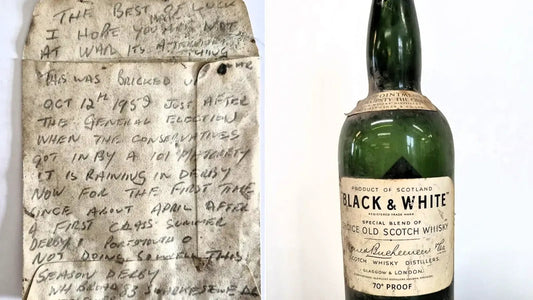 THE BEST OF LUCK
I HOPE YOU ARE NOT
AT WAR ITS A TERRIBLE
THING
THIS WAS BRICKED U
OCT 12TH 1959 JUST AFTER
THE GENERAL ELECTION
WHEN THE CONSERVATIVES
GOT IN BY A 101
IT IS RAINING IN DERBY
NOW FOR THE FIRST TIME
SINCE ABOUT APRIL AFTER
A FIRST CLASS SUMMER
DERBY 1 PORTSMOUTH 0
NOT DOING SO WELL THIS
SEASON DERBY
WH BROAD 93
PRODUCT OF SCOTLAND
"BLACK & WHITE"
REGISTERED TRADE MARK
SPECIAL BLEND OF
OICE OLD SCOTCH WHISKY
James Buchanan
SCOTCH WHISKY DISTILLERS.
GLASGOW & LONDON.
70° PROOF